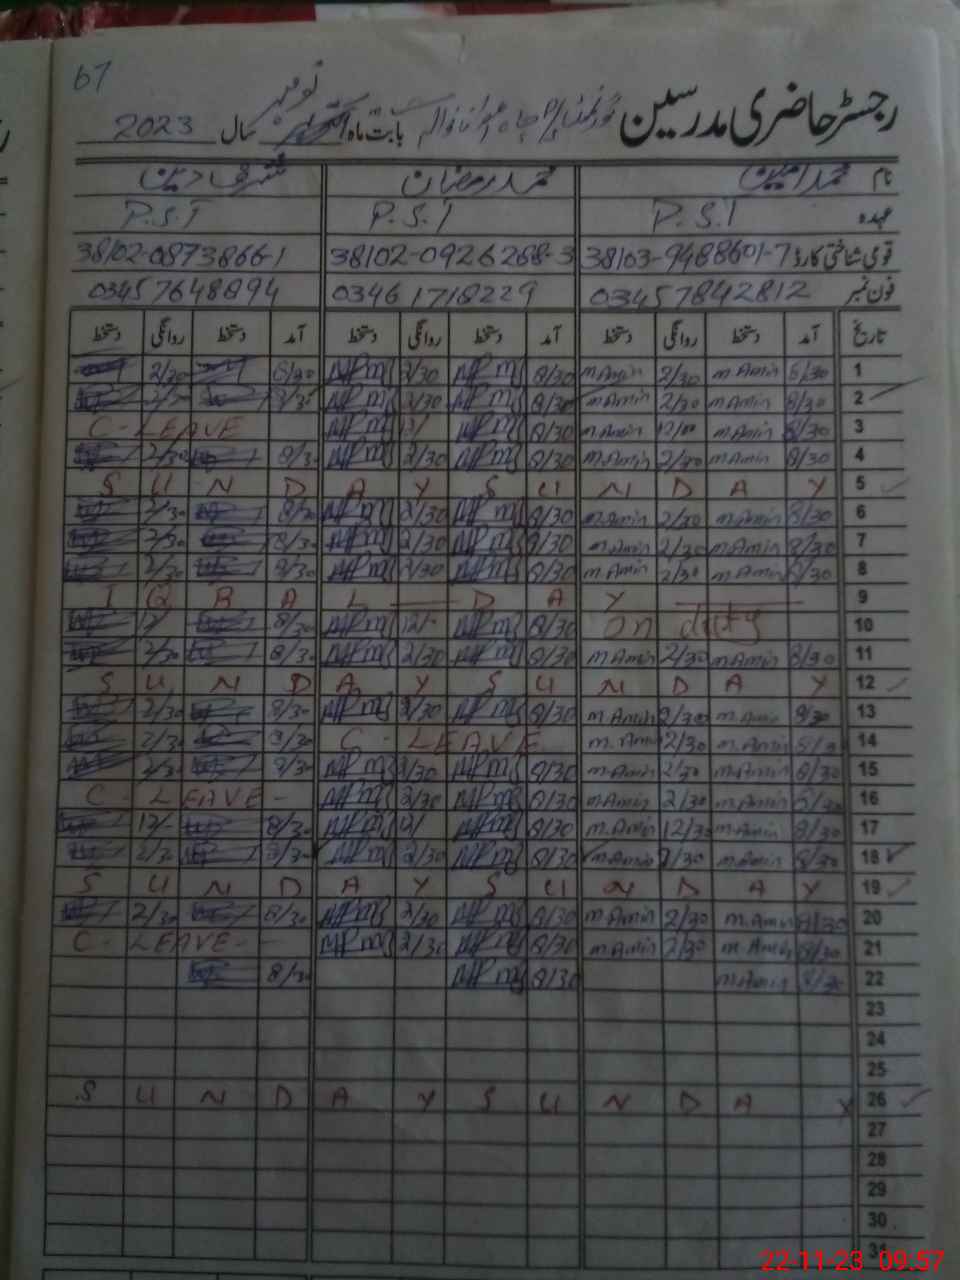 67
رجسٹر حاضری مدرسین
بابت ماہ نومبر سال 2023
نام محمد امین محمد رمضان شرف دین
عہدہ P.S.T P.S.T P.S.T
قومی شناختی کارڈ 38103-9488601-7 38102-0926288-3 38102-0873866-1
فون نمبر 03457842812 03461718229 03457648894
تاریخ آمد دستخط روانگی دستخط آمد دستخط روانگی دستخط آمد دستخط روانگی دستخط
1 8/30 m.Amin 2/30 m.Amin 8/30 2/30 8/30 2/30
2 8/30 m.Amin 2/30 m.Amin 8/30 2/30 8/30 2/30
3 8/30 m.Amin m.Amin 8/30 C-LEAVE
4 8/30 m.Amin 2/30 m.Amin 8/30 2/30 8/30 2/30
5 S U N D A Y S U N D A Y
6 8/30 m.Amin 2/30 m.Amin 8/30 2/30 8/30 2/30
7 8/30 m.Amin 2/30 m.Amin 8/30 2/30 8/30 2/30
8 8/30 m.Amin 2/30 m.Amin 8/30 2/30 8/30 2/30
9 I Q B A L — D A Y
10 on duty 8/30 12/- 8/30
11 8/30 m.Amin 2/30 m.Amin 8/30 2/30 8/30 2/30
12 S U N D A Y S U N D A Y
13 8/30 m.Amin 2/30 m.Amin 8/30 2/30 8/30 2/30
14 8/30 m.Amin 2/30 m.Amin C-LEAVE 8/30 2/30
15 8/30 m.Amin 2/30 m.Amin 8/30 2/30 8/30 2/30
16 8/30 m.Amin 2/30 m.Amin 8/30 2/30 C-LEAVE-
17 8/30 m.Amin 12/30 m.Amin 8/30 12/ 8/30 12/-
18 8/30 m.Amin 2/30 m.Amin 8/30 2/30 8/30 2/30
19 S U N D A Y S U N D A Y
20 8/30 m.Amin 2/30 m.Amin 8/30 2/30 8/30 2/30
21 8/30 m.Amin 2/30 m.Amin 8/30 2/30 C-LEAVE--
22 8/30 m.Amin 8/30 8/30
23
24
25
26 S U N D A Y S U N D A Y
27
28
29
30
31
22-11-23 09:57